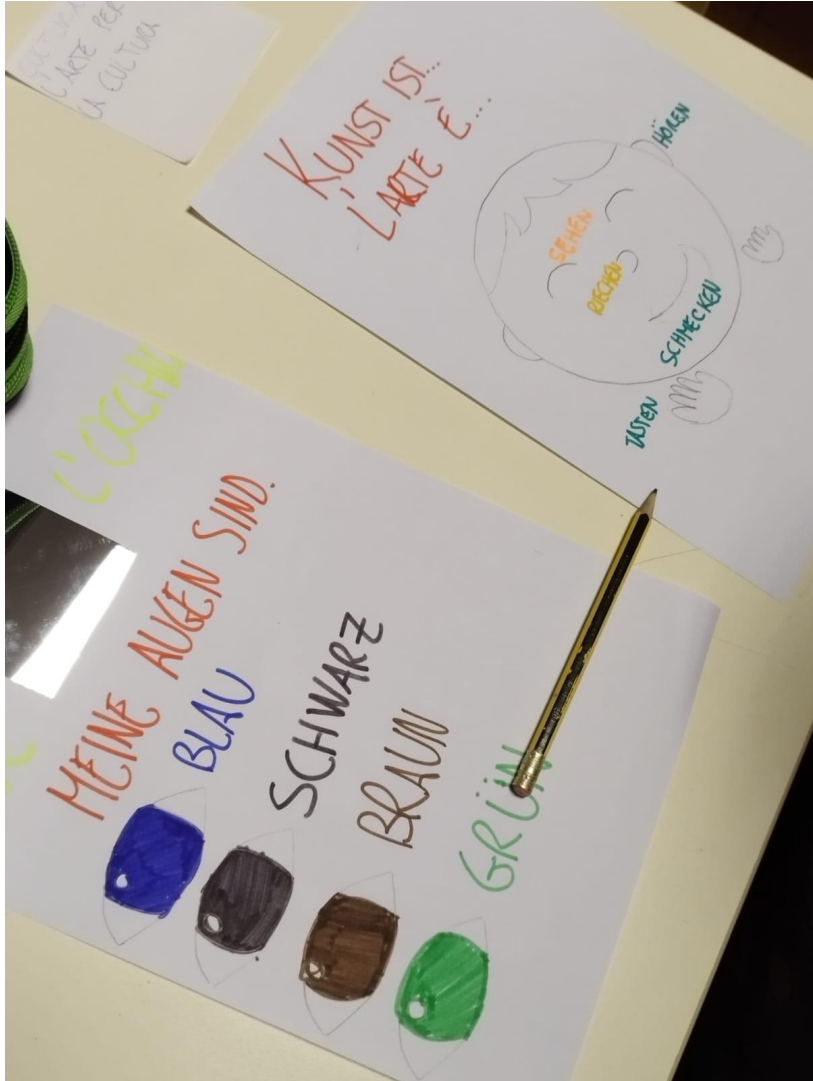 L'ARTE PER
LA CULTURA
KUNST IST...
L'ARTE È...
HÖREN
SEHEN
RIECHEN
SCHMECKEN
TASTEN
MEINE AUGEN SIND.
BLAU
SCHWARZ
BRAUN
GRÜN